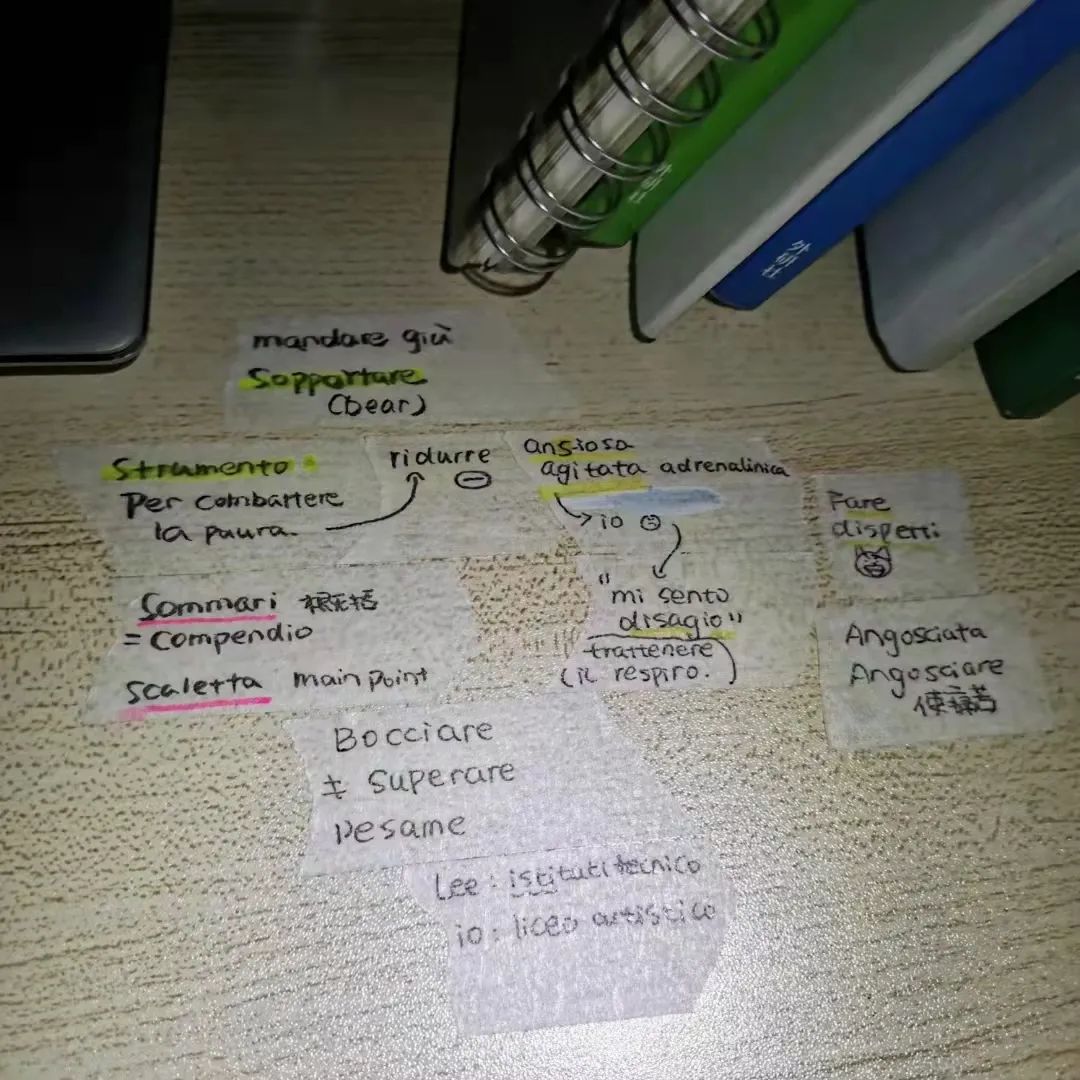 外研社
外研社
mandare giù
Sopportare
(bear)
Strumento
Per combattere
la paura.
ridurre
ansiosa
agitata adrenalinica
io
"mi sento
disagio"
trattenere
(il respiro.)
Fare
dispetti
Sommari 概括
= compendio
Scaletta main point
Angosciata
Angosciare
使痛苦
Bocciare
≠ superare
l'esame
Lee : istituti tecnico
io : liceo artistico